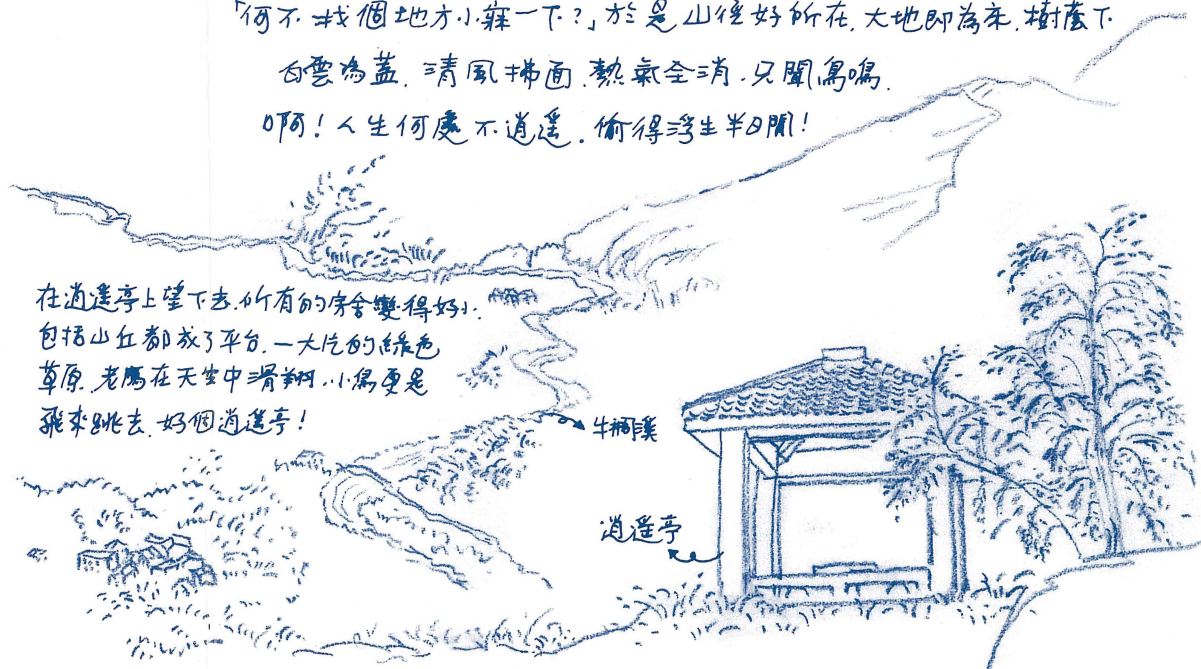 「何不找個地方小寐一下?」於是山徑好所在,大地即為床,樹蔭下
白雲為蓋,清風拂面,熱氣全消,只聞鳥鳴,
啊!人生何處不逍遥,偷得浮生半日閒!
在逍遥亭上望下去,所有的房舍變得好小,
包括山丘都成了平台,一大片的綠色
草原,老鷹在天空中滑翔,小鳥更是
飛來跳去,好個逍遥亭!
牛稠溪
逍遥亭